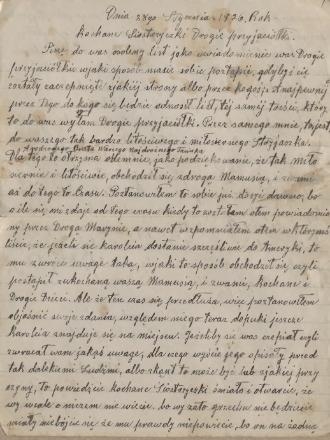 Dnia 28go Stycznia - 1936. Rok
Kochane Siostrzyczki Drogie przyjaciółki.
Piszę do was osobny list jako uwiadomienie was Drogie
przyjaciółki wjaki sposób macie sobie postąpić, gdybyście
zostały zaczepnięte zjakiej strony albo przez kogoś. A najpewniej
przez Tego do kogo się będzie odnosił list, tej samej treści, który
to do was wysłam Drogie przyjaciółki. Przez samego mnie, to jest
do waszego tak bardzo litościwego i miłosnego Stryjaszka.
Dla Tego to otrzyma odemnie, jako podziękowanie, że tak miło
siernie i litościwie, obchodził się zdrogą Mamusią, i z wami
aż do tego to Czasu. Postanowiłem to sobie już dosyć dawno, bo
o ile się mi zdaje od Tego czasu kiedy to zostałam o tem powiadomio
ny przez Drogą Marynie, a nawet wspomniałem o tem w którymś
liście, że jeżeli się karolcia dostanie szczęśliwie do Ameryki, to
mu zwrócę uwagę taką, wjaki to sposób obchodził się czyli
postąpił zukochaną waszą Mamusią, i zwami, Kochane i
Drogie Dzieci. Ale że ten czas się przedłuża, więc postanowiłem
objaśnić swoje zdania, względem niego teraz dopuki jeszcze
karolcia znajduje się na miejscu. Jeżeliby się was czepiał czyli
zwracał wam jakąś uwagę, dlaczego wyście jego opisały przed
tak dalekimi Ludźmi, albo skąd to może być lub zjakiej przy
czyny, to powiedzcie kochane Siostrzyczki śmiało i otwarcie, że
wy wcale o niczem nie wiecie, bo wy za to grzechu nie będziecie
miały niebójcie się że ma prawdy niepowiecie, bo on na żadne